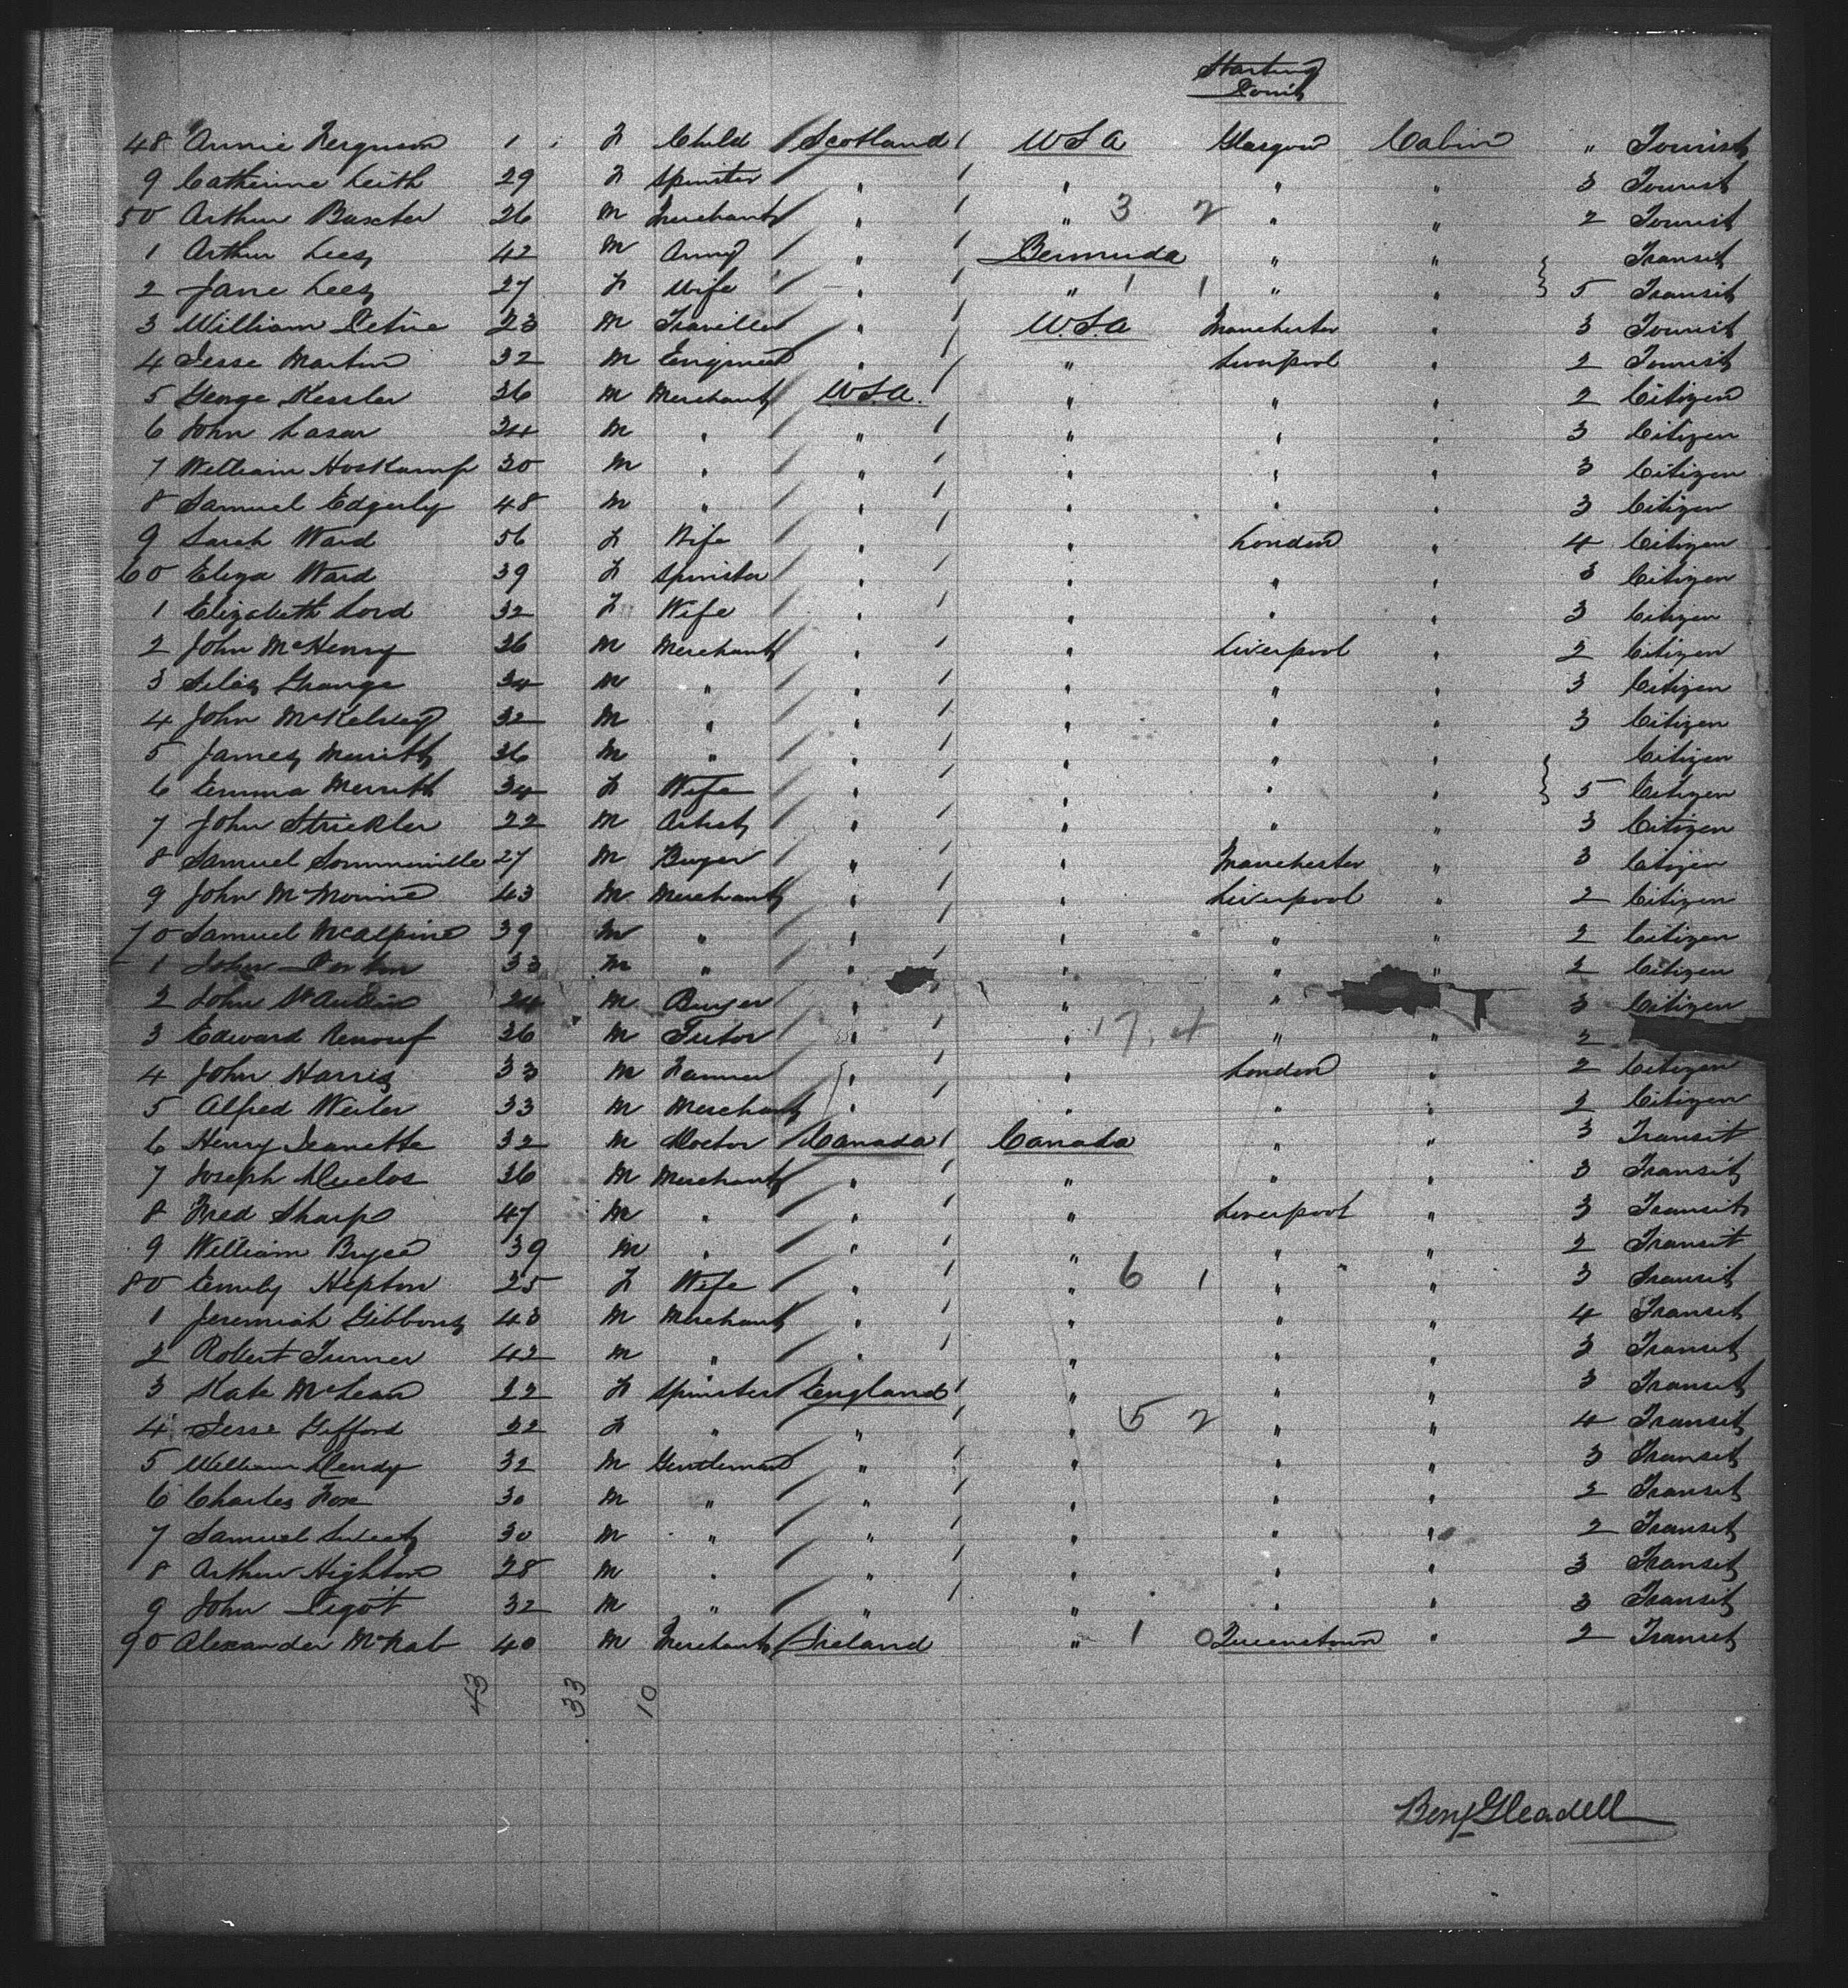 Starting
Point
48 Annie Ferguson 1 F Child Scotland U.S.A Glasgow Cabin " Tourist
9 Catherine Leith 29 F Spinster " " " " 3 Tourist
50 Arthur Baxter 26 M Merchant " " 3 2 " " 2 Tourist
1 Arthur Lees 42 M Army " Bermuda " " Transit
2 Jane Lees 27 F Wife " " 1 1 " " 5 Transit
3 William Petrie 23 M Traveller " U.S.A Manchester " 3 Tourist
4 Jesse Martin 32 M Engineer " " Liverpool " 2 Tourist
5 George Kessler 36 M Merchant U.S.A. " " " 2 Citizen
6 John Lasar 34 M " " " " " 3 Citizen
7 William Hoskamp 30 M " " " " " 3 Citizen
8 Samuel Edgerly 48 M " " " " " 3 Citizen
9 Sarah Ward 56 F Wife " " London " 4 Citizen
60 Eliza Ward 39 F Spinster " " " " 3 Citizen
1 Elizabeth Lord 32 F Wife " " " " 3 Citizen
2 John McHenry 36 M Merchant " " Liverpool " 2 Citizen
3 Silas Grange 34 M " " " " " 3 Citizen
4 John McKelvey 32 M " " " " " 3 Citizen
5 James Merritt 36 M " " " " " Citizen
6 Emma Merritt 34 F Wife " " " " 5 Citizen
7 John Strickler 22 M Artist " " " " 3 Citizen
8 Samuel Sommerville 27 M Buyer " " Manchester " 3 Citizen
9 John 43 M Merchant " " Liverpool " 2 Citizen
70 Samuel McAlpine 39 M " " " " " 2 Citizen
1 John 33 M " " " " " 2 Citizen
2 John 24 M Buyer " " " 3 Citizen
3 Edward Renouf 36 M Tutor " " 17. 4 " " 2
4 John Harris 33 M Farmer " " London " 2 Citizen
5 Alfred Weiler 33 M Merchant " " " " 2 Citizen
6 Henry Jeanette 32 M Doctor Canada Canada " " 3 Transit
7 Joseph Duclos 36 M Merchant " " " " 3 Transit
8 Fred Sharp 47 M " " " Liverpool " 3 Transit
9 William Bryce 39 M " " " " " 2 Transit
80 Emily Hepton 25 F Wife " " 6 1 " " 3 Transit
1 Jeremiah Gibbons 43 M Merchant " " " " 4 Transit
2 Robert Turner 42 M " " " " " 3 Transit
3 Kate McLean 22 F Spinster England " " " 3 Transit
4 Jesse Gifford 22 F " " " 5 2 " " 4 Transit
5 William Dendy 32 M Gentleman " " " " 3 Transit
6 Charles Fox 30 M " " " " " 2 Transit
7 Samuel Sweet 30 M " " " " " 2 Transit
8 Arthur Highton 28 M " " " " " 3 Transit
9 John Pigot 32 M " " " " " 3 Transit
90 Alexander McNab 40 M Merchant Ireland " 1 0 Queenstown " 2 Transit
43 33 10
Benj Gleadell